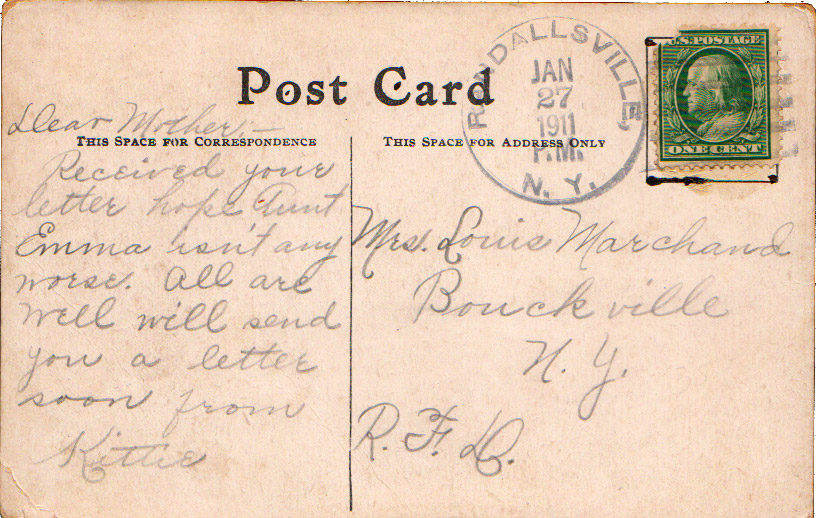 Post Card
THIS SPACE FOR CORRESPONDENCE
THIS SPACE FOR ADDRESS ONLY
RANDALLSVILLE,
JAN
27
1911
P.M.
N. Y.
U.S. POSTAGE
ONE CENT
Dear Mother,—
Received your
letter hope Aunt
Emma isn't any
worse. All are
well will send
you a letter
soon from
Kittie
Mrs. Louis Marchand
Bouckville
N. Y.
R. F. D.